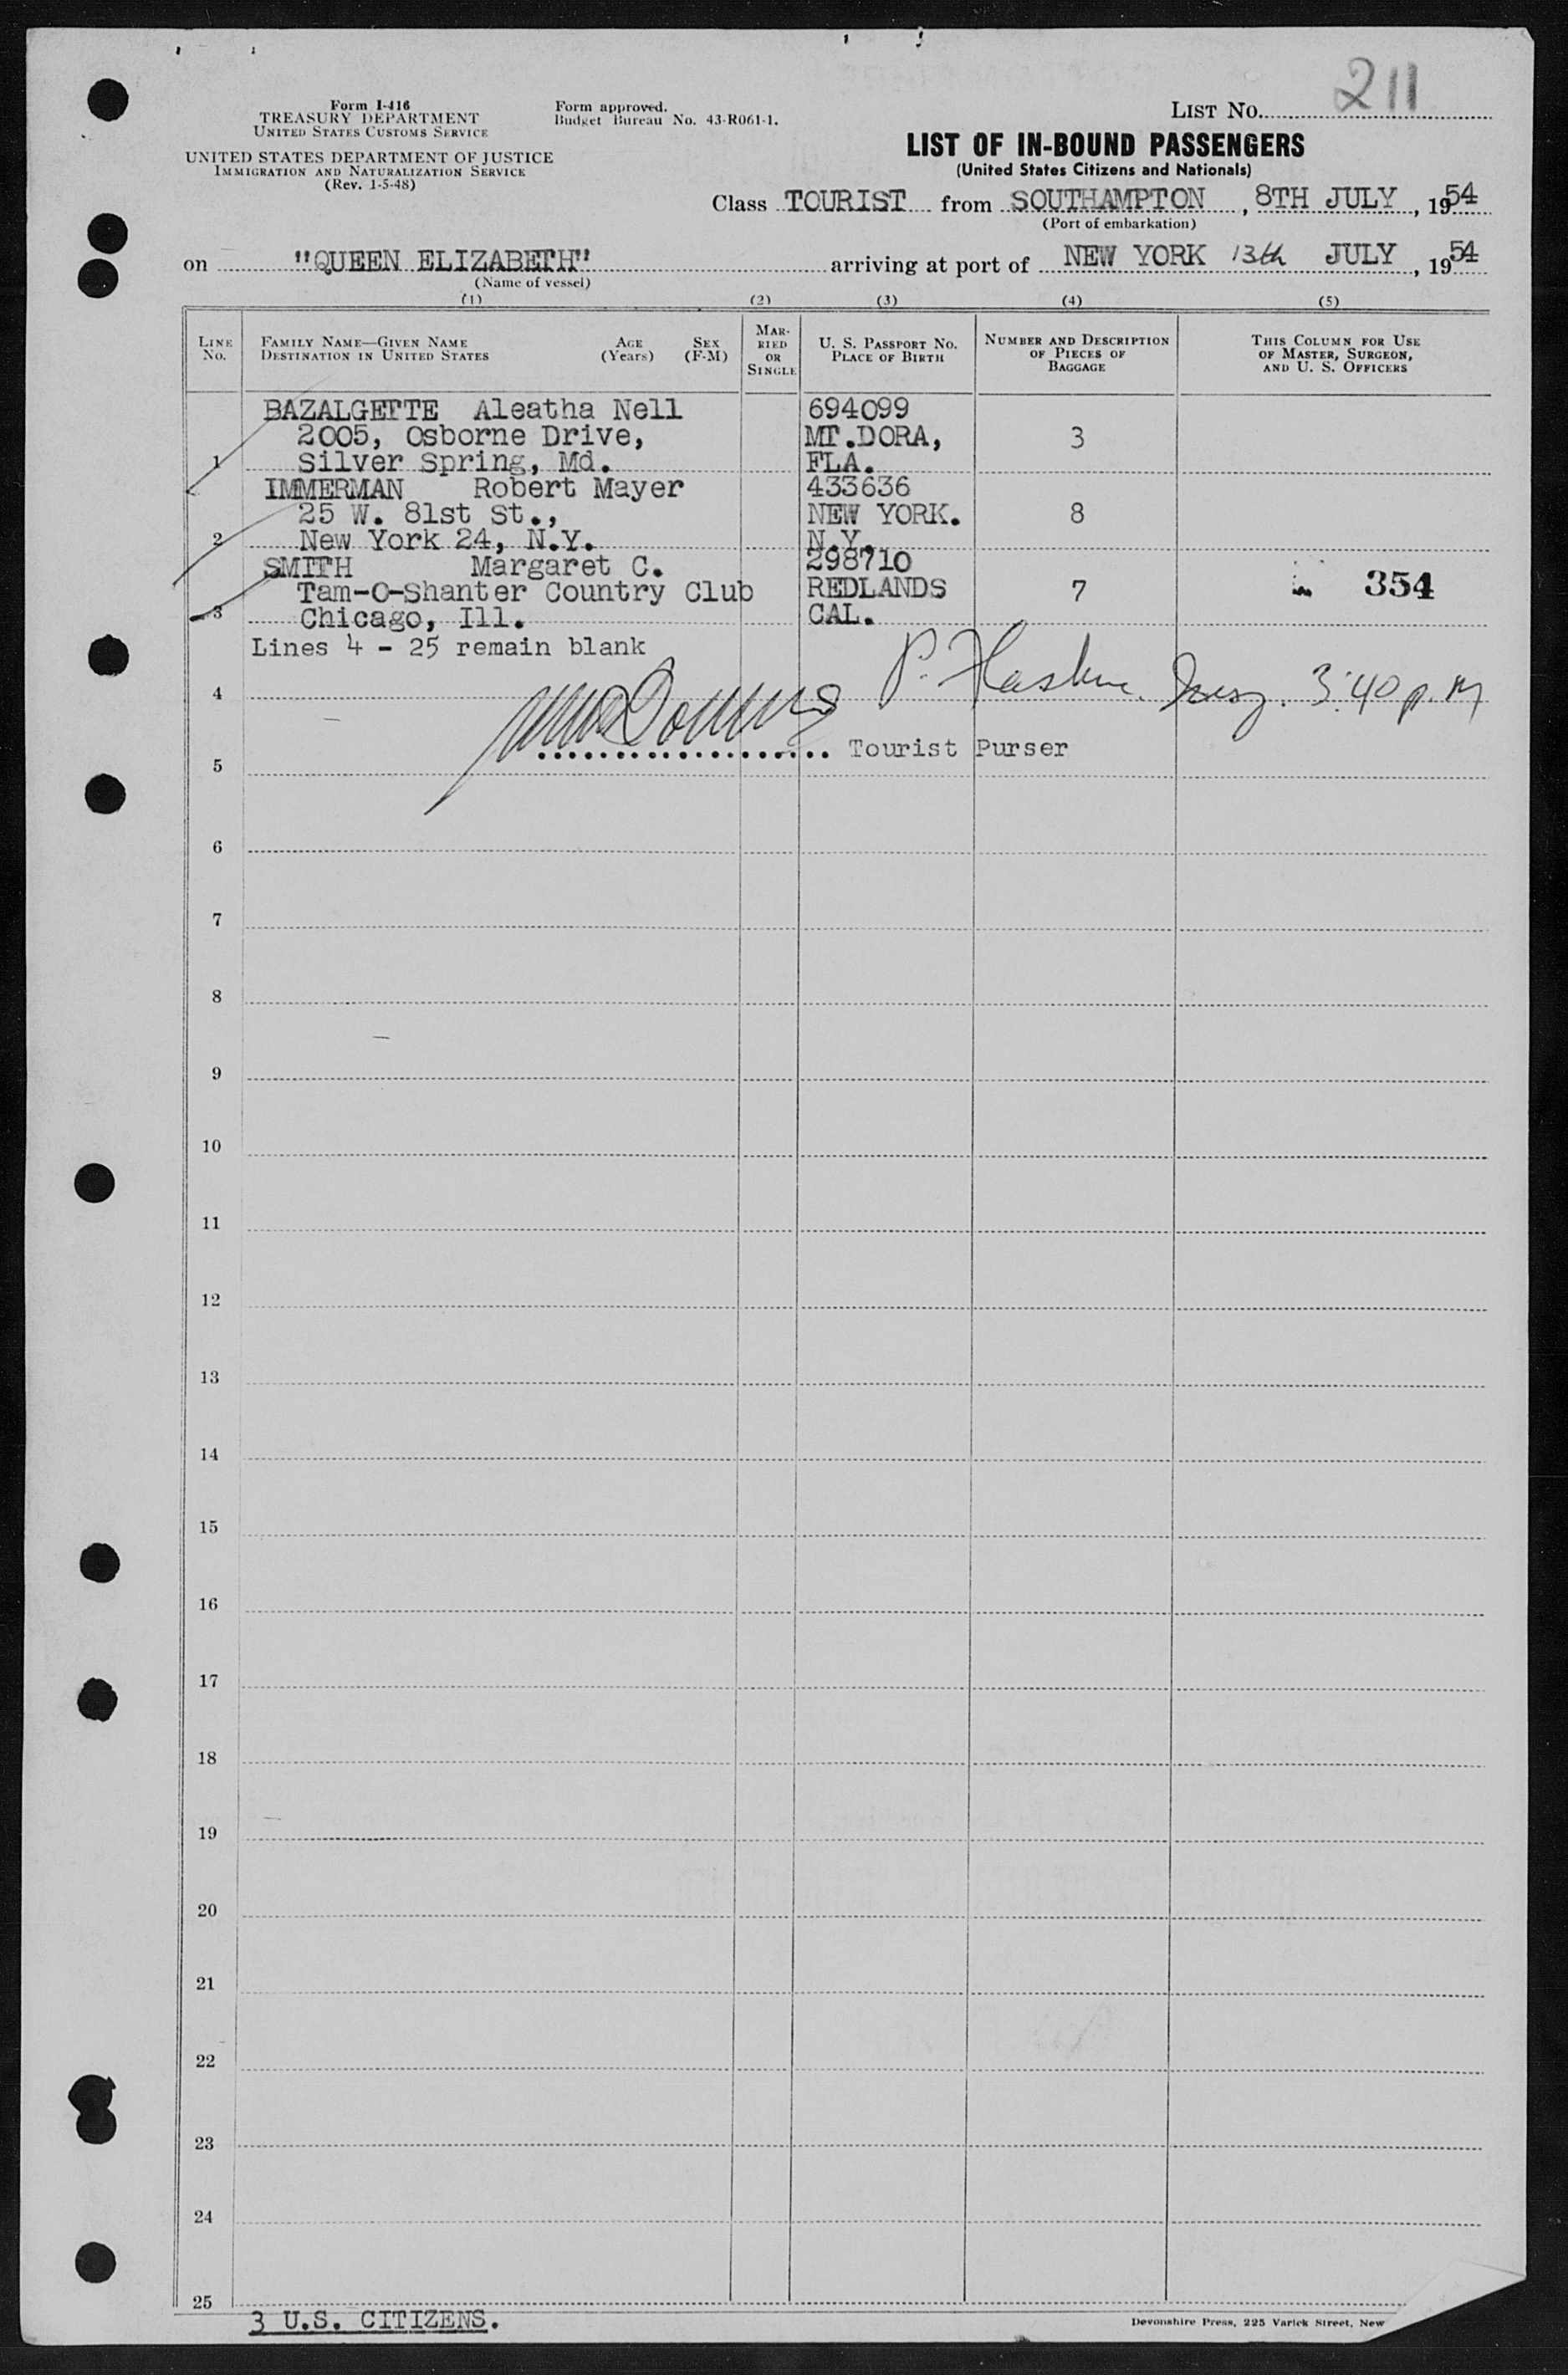 Form I-416
TREASURY DEPARTMENT
UNITED STATES CUSTOMS SERVICE
UNITED STATES DEPARTMENT OF JUSTICE
IMMIGRATION AND NATURALIZATION SERVICE
(Rev. 1-5-48)
Form approved.
Budget Bureau No. 43-R061-1.
LIST NO. 211
LIST OF IN-BOUND PASSENGERS
(United States Citizens and Nationals)
Class TOURIST from SOUTHAMPTON, 8TH JULY, 1954
(Port of embarkation)
on "QUEEN ELIZABETH" arriving at port of NEW YORK 13th JULY, 1954
(Name of vessel)
(1) (2) (3) (4) (5)
LINE No.
FAMILY NAME—GIVEN NAME
DESTINATION IN UNITED STATES
AGE (Years)
SEX (F-M)
MARRIED OR SINGLE
U. S. PASSPORT NO.
PLACE OF BIRTH
NUMBER AND DESCRIPTION OF PIECES OF BAGGAGE
THIS COLUMN FOR USE OF MASTER, SURGEON, AND U. S. OFFICERS
BAZALGETTE Aleatha Nell 694099
2005, Osborne Drive, MT.DORA, 3
1 Silver Spring, Md. FLA.
IMMERMAN Robert Mayer 433636
25 W. 81st St., NEW YORK. 8
2 New York 24, N.Y. N.Y.
SMITH Margaret C. 298710
Tam-O-Shanter Country Club REDLANDS 7 354
3 Chicago, Ill. CAL.
Lines 4 - 25 remain blank
4 P. 3:40 p.m
5 Tourist Purser
6
7
8
9
10
11
12
13
14
15
16
17
18
19
20
21
22
23
24
25
3 U.S. CITIZENS.
Devonshire Press, 225 Varick Street, New